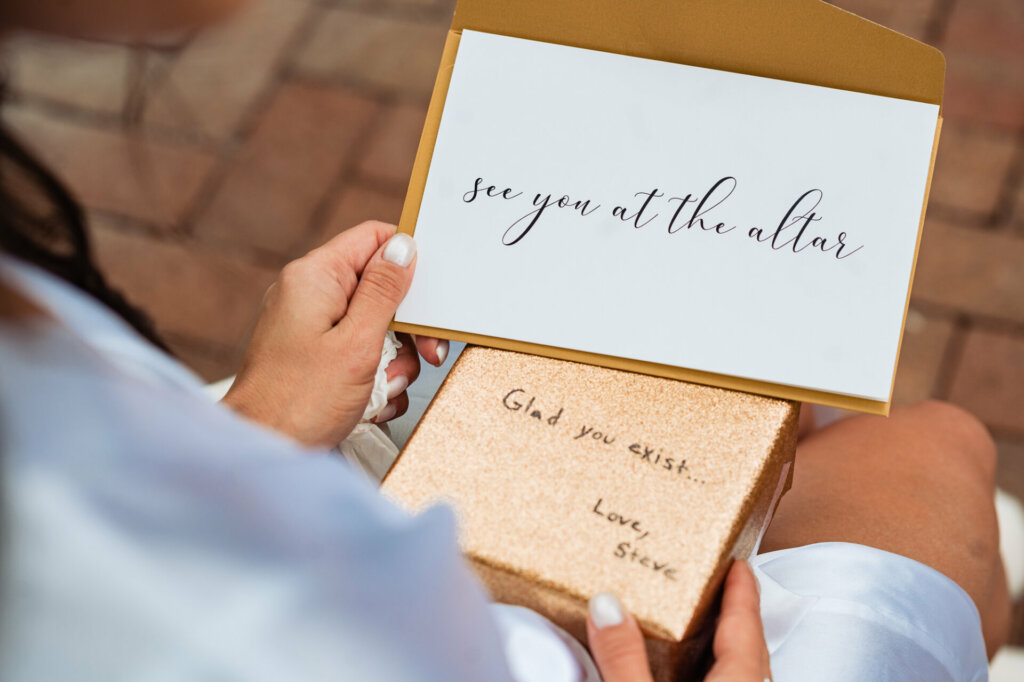 see you at the altar
Glad you exist...
Love,
Steve